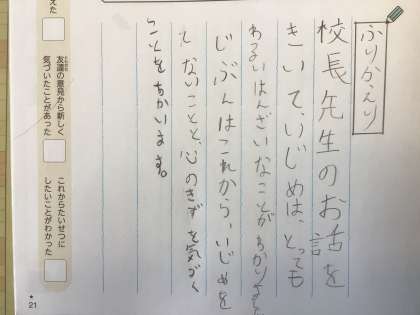 ふりかえり
校長先生のお話を
きいて、いじめは、とっても
わるいはんざいなことがわかりました
じぶんはこれから、いじめを
し ないことと、心のきずを気づく
ことをちかいます。
これからたいせつに
したいことがわかった
友達の意見から新しく
気づいたことがあった
えた
★
21